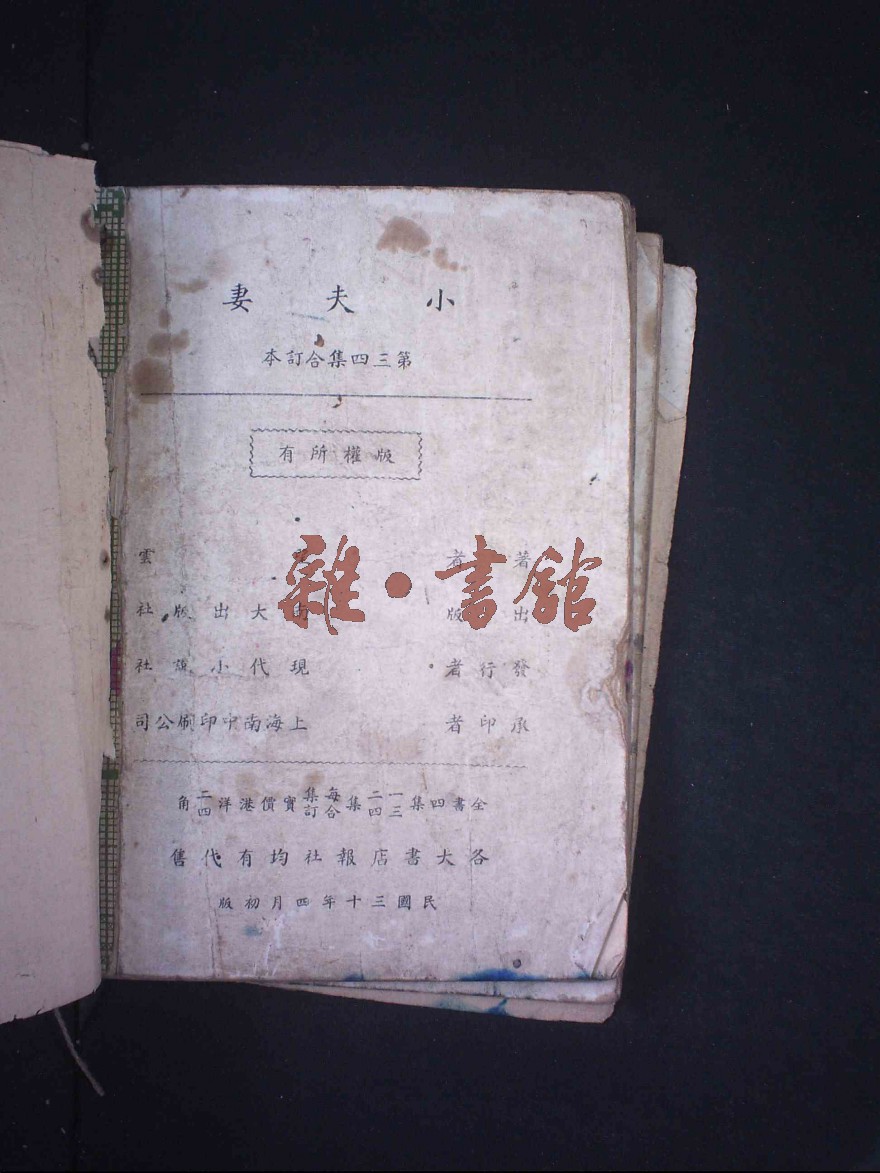 小夫妻
第三四集合訂本
版權所有
著者 雲
出版 大出版社
發行者 現代小說社
承印者 上海南中印刷公司
全書四集一二三四集每集合訂實價港洋二四角
各大書店報社均有代售
民國三十年四月初版
雜·書館